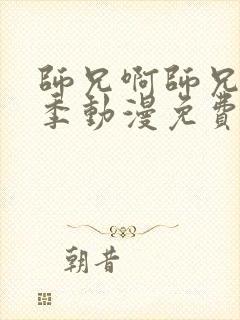 師兄啊師兄
季動漫免費
朝昔